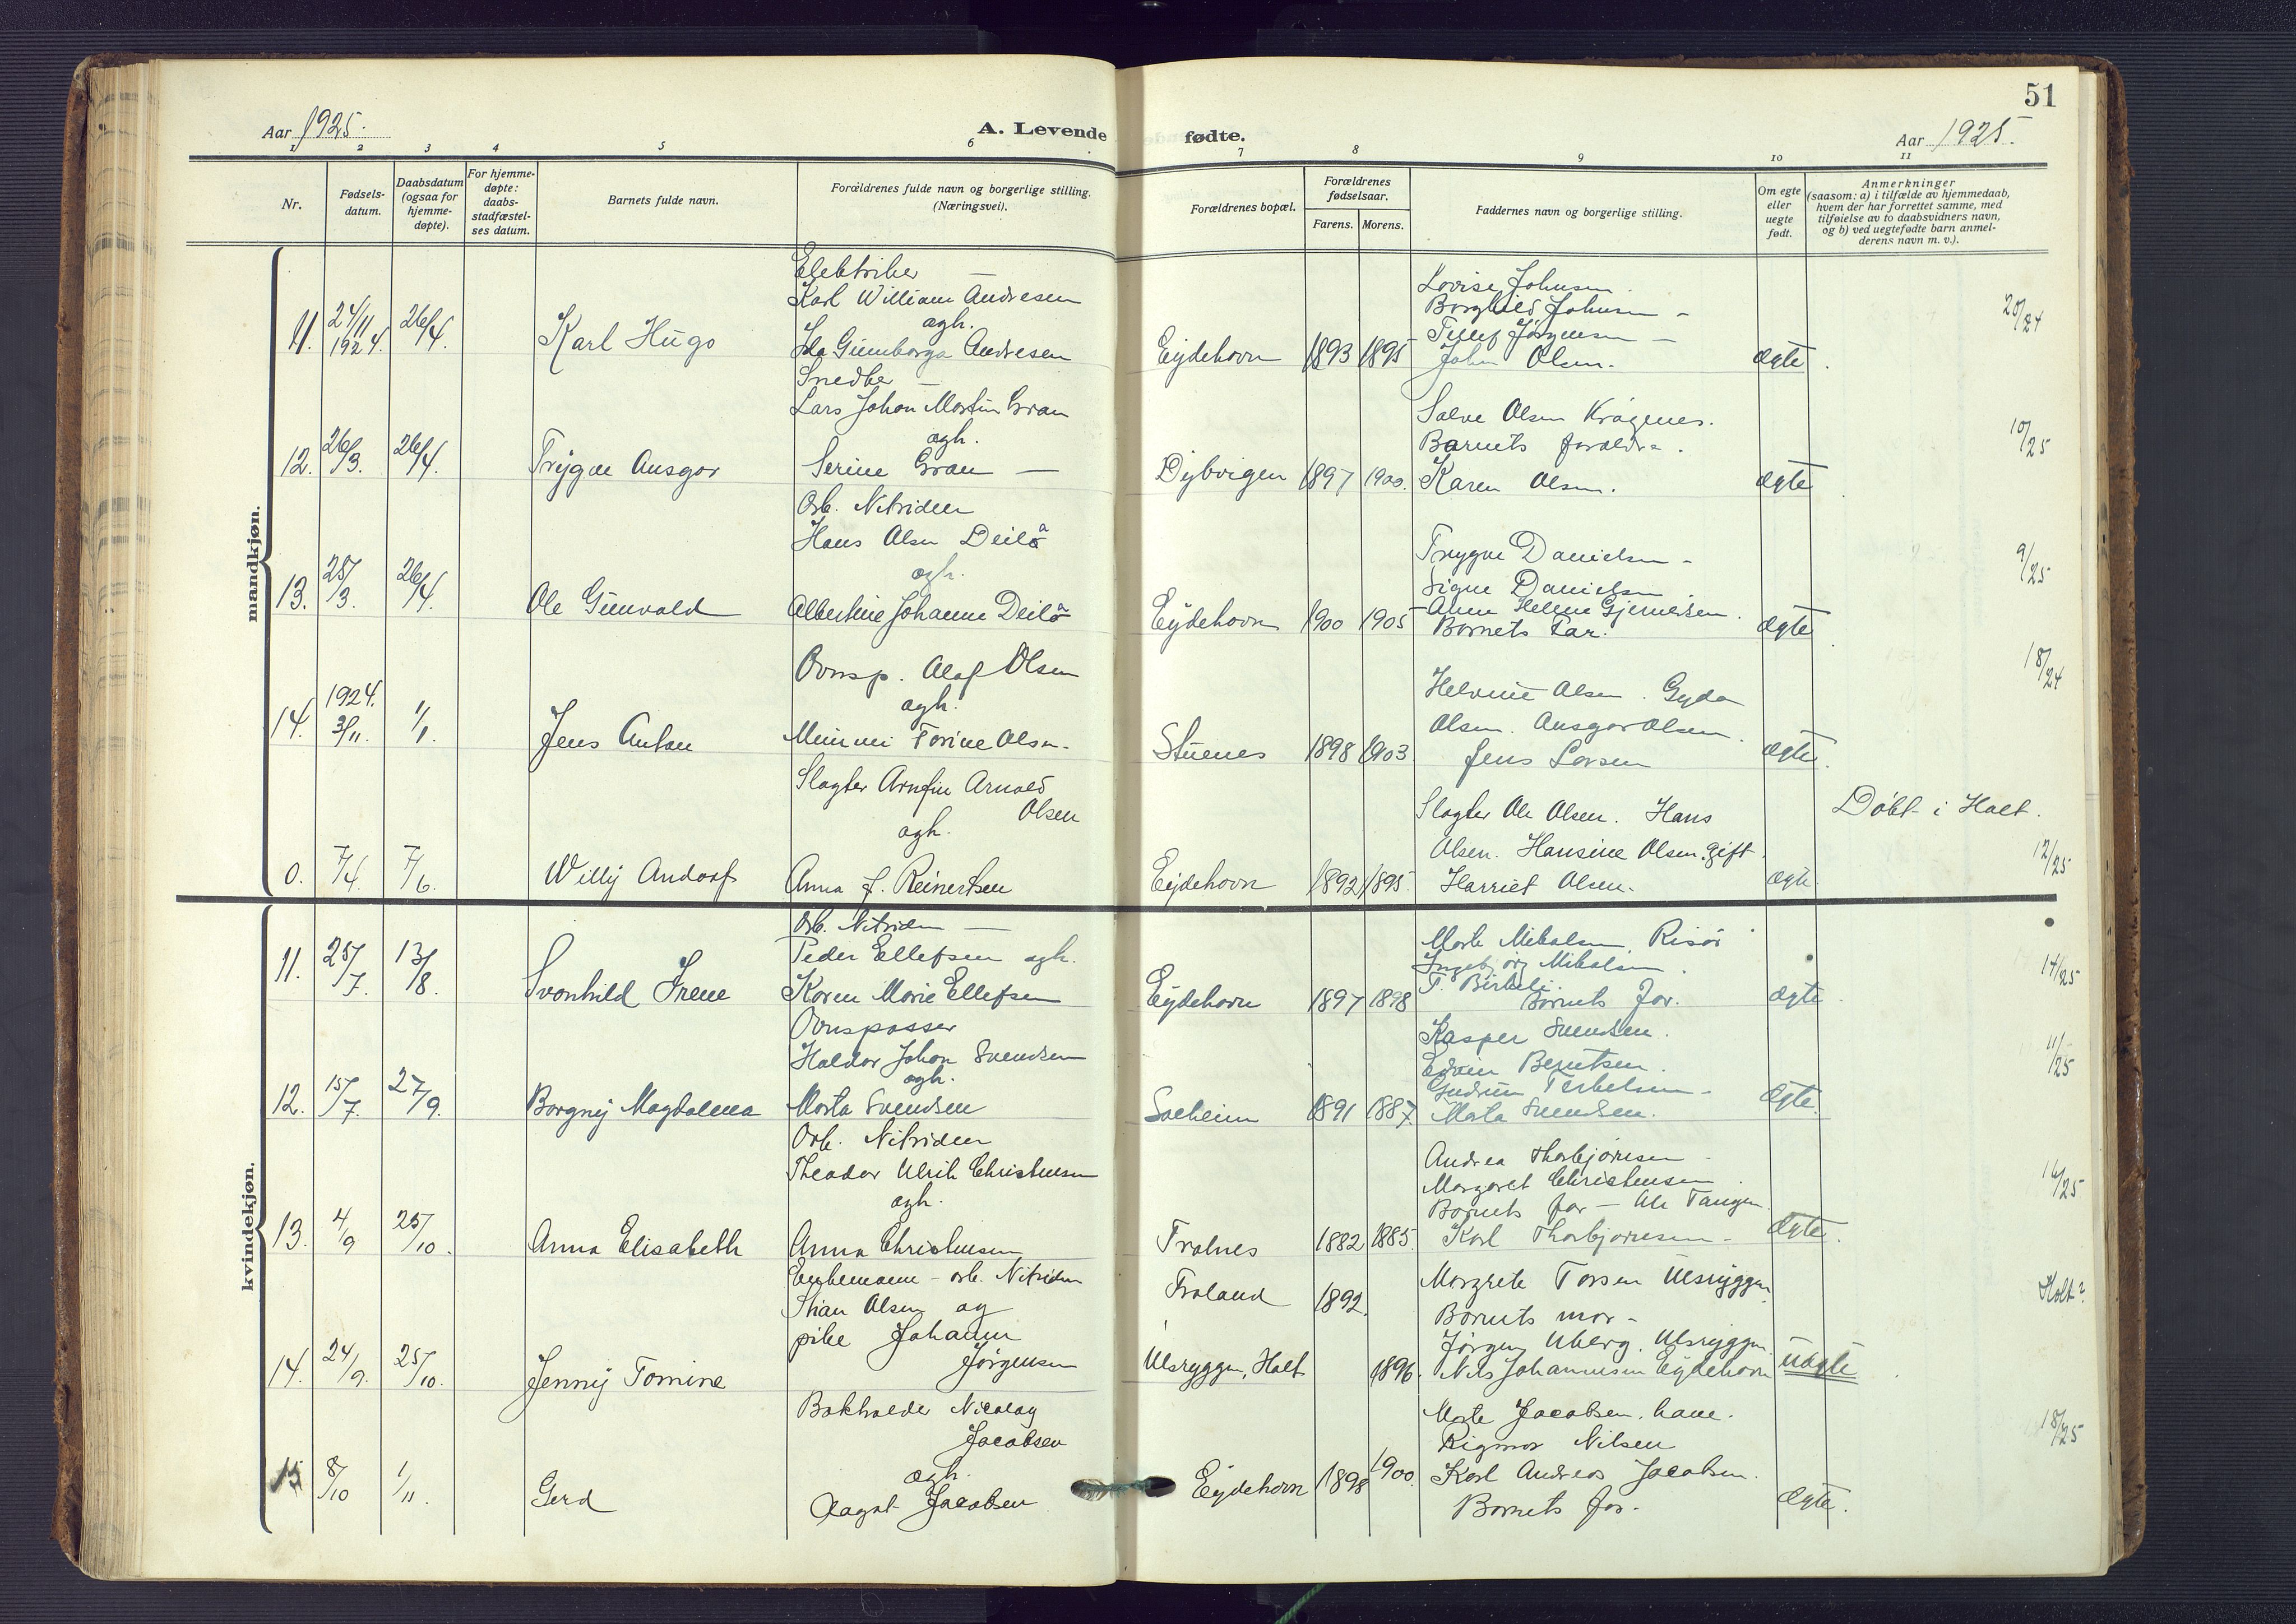 51
Aar 1925.
A. Levende fødte.
Aar 1925.
1 2 3 4 5 6 7 8 9 10 11
Nr.
Fødsels-
datum.
Daabsdatum
(ogsaa for
hjemme-
døpte).
For hjemme-
døpte:
daabs-
stadfæstel-
ses datum.
Barnets fulde navn.
Forældrenes fulde navn og borgerlige stilling.
(Næringsvei).
Forældrenes bopæl.
Forældrenes
fødselsaar.
Farens. Morens.
Faddernes navn og borgerlige stilling.
Om egte
eller
uegte
født.
Anmerkninger
(saasom: a) i tilfælde av hjemmedaab,
hvem der har forrettet samme, med
tilføielse av to daabsvidners navn,
og b) ved uegtefødte barn anmel-
derens navn m. v.).
mandkjøn.
11. 24/11 1924. 26/4. Karl Hugo
Elektriker
Karl William Andresen
ogh.
Ida Gunborga Andresen
Eydehavn 1893 1895
Lovise Johnsen.
Borghild Johnsen
Tellef Jörgensen
John Olsen.
ægte
20/24
12. 26/3. 26/4. Trygve Ansgar
Snedker
Lars Johan Martin Gran
ogh.
Serine Gran
Dybvigen 1897 1900.
Salve Olsen Krågenes.
Barnets foraldre.
Karen Olsen.
ægte
10/25
13. 25/3. 26/4. Ole Gunvald
Arb. Nitriden
Hans Olsen Deilå
ogh.
Albertine Johanne Deilå
Eydehavn 1900 1905
Trygve Danielsen
Signe Danielsen
Anne Helene Gjermesen.
Barnets Far.
ægte
9/25
14. 1924. 3/11. 1/1. Jens Anton
Ovnsp. Olaf Olsen
ogh.
Mimmi Torine Olsen.
Stuenes 1898 1903
Helvine Olsen. Gyda
Olsen. Ansgar Olsen.
Jens Larsen
ægte.
18/24
0. 7/4. 7/6. Willy Andorf
Slagter Arnfin Arnold
Olsen
ogh.
Anna J. Reinertsen
Eydehavn 1892 1895.
Slagter Ole Olsen. Hans
Olsen. Hansine Olsen, gift.
Harriet Olsen.
ægte
Döbt i Holt.
12/25
kvindekjøn.
11. 25/7. 13/8. Svanhild Irene
Arb. Nitriden
Peder Ellefsen ogh.
Karen Marie Ellefsen
Eydehavn 1897 1898
Marte Mikalsen, Risör
Ingebjörg Mikalsen.
T. Birkeli.
Barnets far.
ægte
14/25
12. 15/7. 27/9. Borgny Magdalena
Ovnspasser
Haldor Johan Svendsen
ogh.
Marta Svendsen
Solheim 1891 1887.
Kasper Svendsen.
Edvin Berntsen.
Gudrun Terkelsen
Marta Svendsen.
ægte.
11/25
13. 4/9 25/10. Anna Elisabeth
Arb. Nitriden
Theodor Ulrik Christensen
ogh.
Anna Christensen
Tralnes 1882 1885.
Andrea Thorbjörnsen
Margaret Christensen
Barnets far - Ole Tangen.
Karl Thorbjörnsen
ægte.
16/25
14. 24/9. 25/10. Jenny Tomine
Enkemann - arb. Nitriden
Stian Olsen og
pike Johanne
Jörgensen
Froland 1892.
Ulsryggen, Holt 1896.
Margrete Torsen Ulsryggen
Barnets mor -
Jörgen Uberg. Ulsryggen.
Nils Johannesen Eydehavn
uægte
Holt?
15 8/10 1/11. Gerd
Bokholder Nicolay
Jacobsen
ogh.
Aagot Jacobsen
Eydehavn 1898 1900.
Marte Jacobsen.
Rigmor Nilsen
Karl Andreas Jacobsen.
Barnets far.
ægte.
18/25